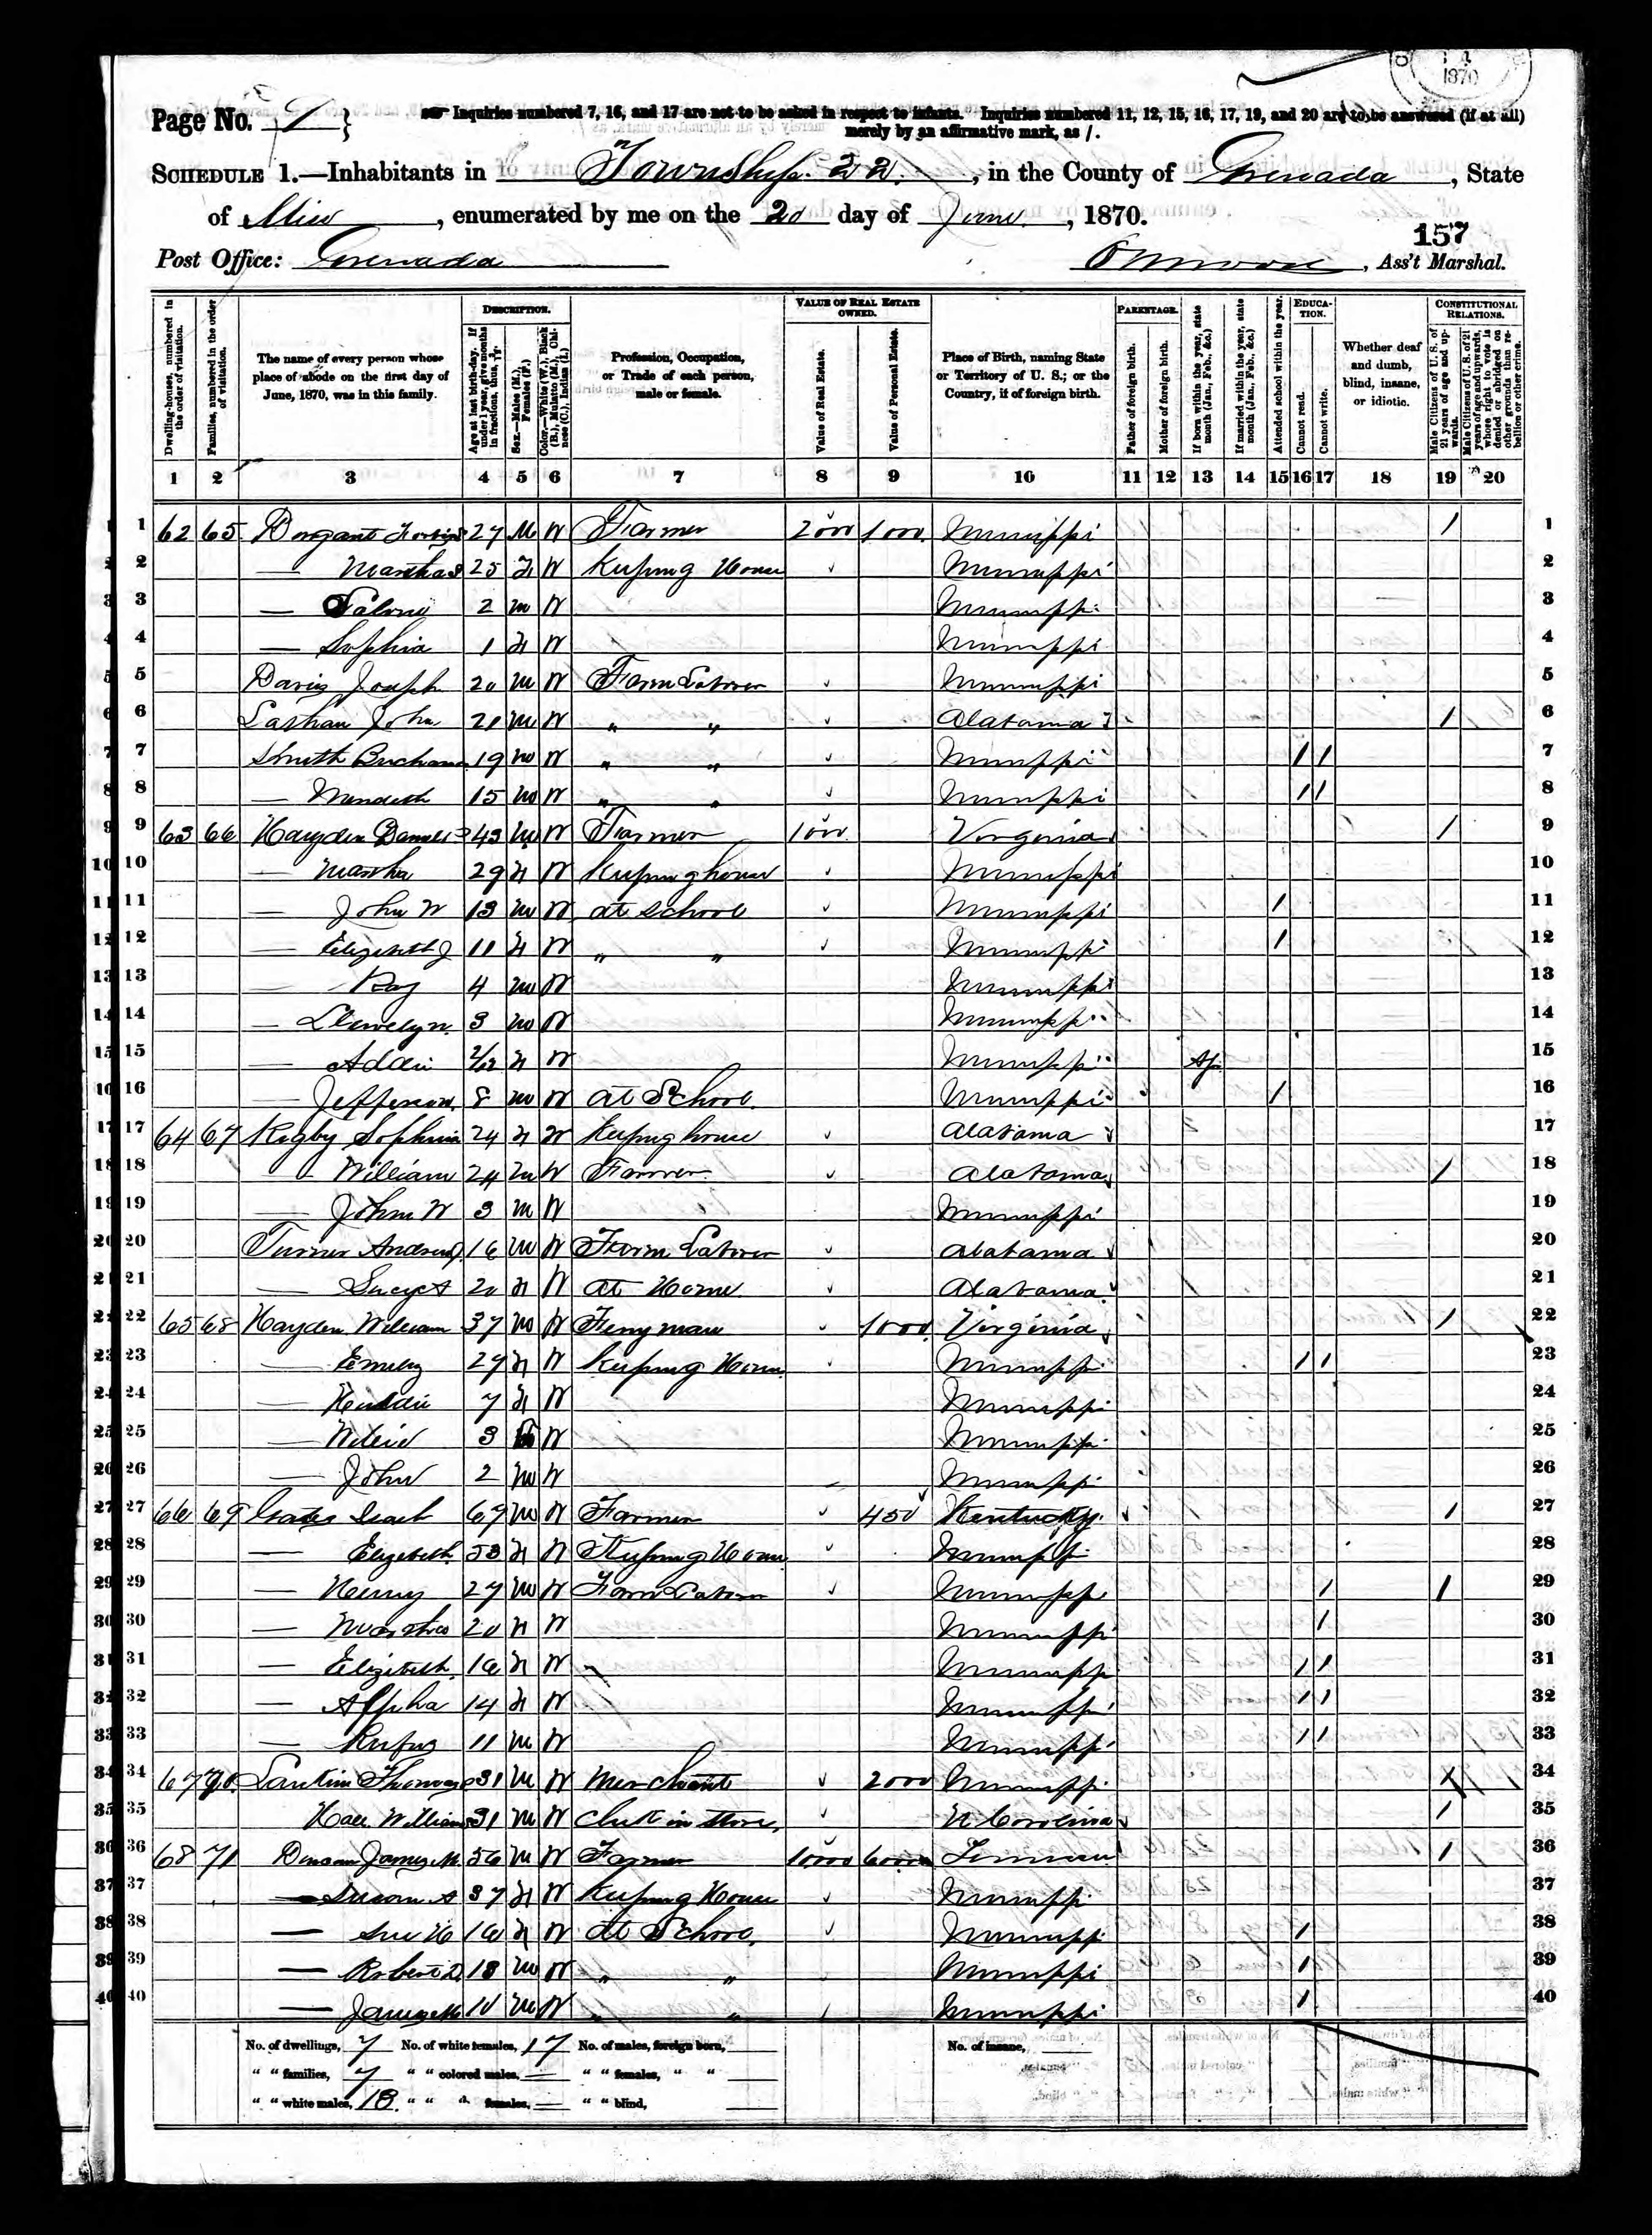 1870
Page No. 9 } Inquiries numbered 7, 16, and 17 are not to be asked in respect to infants. Inquiries numbered 11, 12, 15, 16, 17, 19, and 20 are to be answered (if at all)
merely by an affirmative mark, as /.
SCHEDULE 1.—Inhabitants in Township 22, in the County of Grenada, State
of Miss, enumerated by me on the 20 day of June, 1870.
157
Post Office: Grenada , Ass't Marshal.
DESCRIPTION. VALUE OF REAL ESTATE OWNED. PARENTAGE. EDUCATION. CONSTITUTIONAL RELATIONS.
Dwelling-houses, numbered in the order of visitation.
Families, numbered in the order of visitation.
The name of every person whose place of abode on the first day of June, 1870, was in this family.
Age at last birth-day. If under 1 year, give months in fractions, thus,
Sex.—Males (M.), Females (F.)
Color.—White (W.), Black (B.), Mulatto (M.), Chinese (C.), Indian (I.)
Profession, Occupation, or Trade of each person, male or female.
Value of Real Estate.
Value of Personal Estate.
Place of Birth, naming State or Territory of U. S.; or the Country, if of foreign birth.
Father of foreign birth.
Mother of foreign birth.
If born within the year, state month (Jan., Feb., &c.)
If married within the year, state month (Jan., Feb., &c.)
Attended school within the year.
Cannot read.
Cannot write.
Whether deaf and dumb, blind, insane, or idiotic.
Male Citizens of U. S. of 21 years of age and upwards.
Male Citizens of U. S. of 21 years of age and upwards, whose right to vote is denied or abridged on other grounds than rebellion or other crime.
1 2 3 4 5 6 7 8 9 10 11 12 13 14 15 16 17 18 19 20
1 62 65 27 M W Farmer 2000 1000 Mississippi / 1
2 — Martha 25 F W Keeping House Mississippi 2
3 — 2 M W Mississippi 3
4 — Sophia 1 F W Mississippi 4
5 Davis Joseph 20 M W Farm Laborer Mississippi 5
6 John 21 M W " " Alabama / 6
7 Smith Buchanan 19 M W " " Mississippi / / 7
8 — 15 M W " " Mississippi / / 8
9 63 66 Hayden Daniel 43 M W Farmer 1000 Virginia / 9
10 — Martha 29 F W Keeping house Mississippi 10
11 — John W 13 M W at school Mississippi / 11
12 — Elizabeth J 11 F W " " Mississippi / 12
13 — Ray 4 M W Mississippi 13
14 — Llewelyn 3 M W Mississippi 14
15 — Addie 2/12 F W Mississippi Ap 15
16 — Jefferson 8 M W at School Mississippi / 16
17 64 67 Rigby Sophia 24 F W Keeping house Alabama 17
18 — William 24 M W Farmer Alabama / 18
19 — John W 3 M W Mississippi 19
20 Turner Andrew J. 16 M W Farm Laborer Alabama 20
21 — Lucy A 20 F W at Home Alabama 21
22 65 68 Hayden William 37 M W Ferryman 1000 Virginia / 22
23 — Emily 27 F W Keeping House Mississippi / / 23
24 — 7 F W Mississippi 24
25 — Willie 3 W Mississippi 25
26 — John 2 M W Mississippi 26
27 66 69 67 M W Farmer 450 Kentucky / 27
28 — Elizabeth 53 F W Keeping House Mississippi 28
29 — Henry 27 M W Farm Laborer Mississippi / / 29
30 — Martha 20 F W Mississippi / 30
31 — Elizabeth 16 F W Mississippi / / 31
32 — Alpha 14 F W Mississippi / / 32
33 — Rufus 11 M W Mississippi / / 33
34 67 70 Thomas 31 M W Merchant 2000 Mississippi / 34
35 Hall William 31 M W Clerk in Store N Carolina / 35
36 68 71 James M. 56 M W Farmer 10000 6000 Tennessee / 36
37 — Susan A 37 F W Keeping House Mississippi 37
38 — Sue H 16 F W At School Mississippi / 38
39 — Robert D. 13 M W " " Mississippi / 39
40 — James M 10 M W " " Mississippi / 40
No. of dwellings, 7 No. of white females, 17 No. of males, foreign born, No. of insane,
" " families, 7 " " colored males, — " " females, " "
" " white males, " " " females, — " " blind,